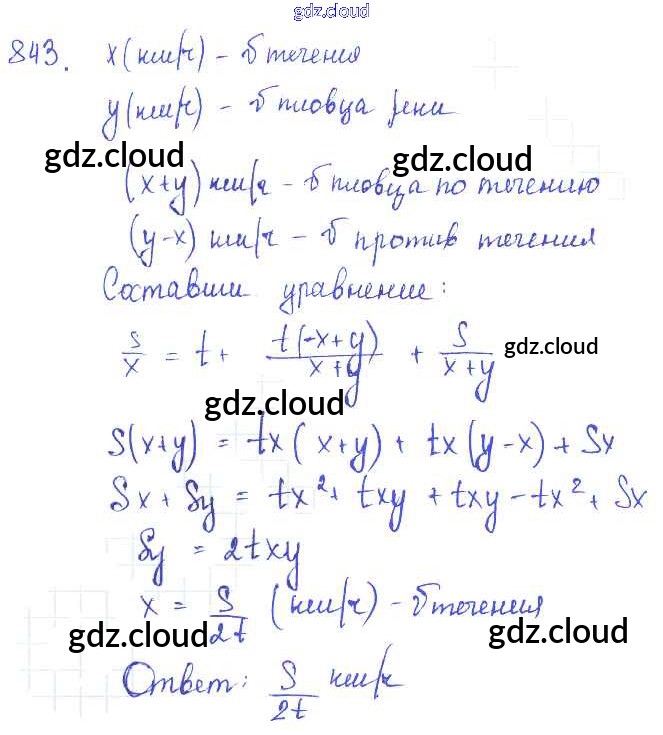 gdz.cloud
843. x(км/ч) – v течения
y(км/ч) – v пловца реки
gdz.cloud gdz.cloud
(x+y) км/ч – v пловца по течению
(y-x) км/ч – v против течения
Составим уравнение:
s/x = t + t(-x+y)/x+y + s/x+y gdz.cloud
gdz.cloud
S(x+y) = tx(x+y) + tx(y-x) + Sx
Sx + Sy = tx² + txy + txy - tx² + Sx
Sy = 2txy
x = S/2t (км/ч) – v течения
gdz.cloud gdz.cloud
Ответ: S/2t км/ч